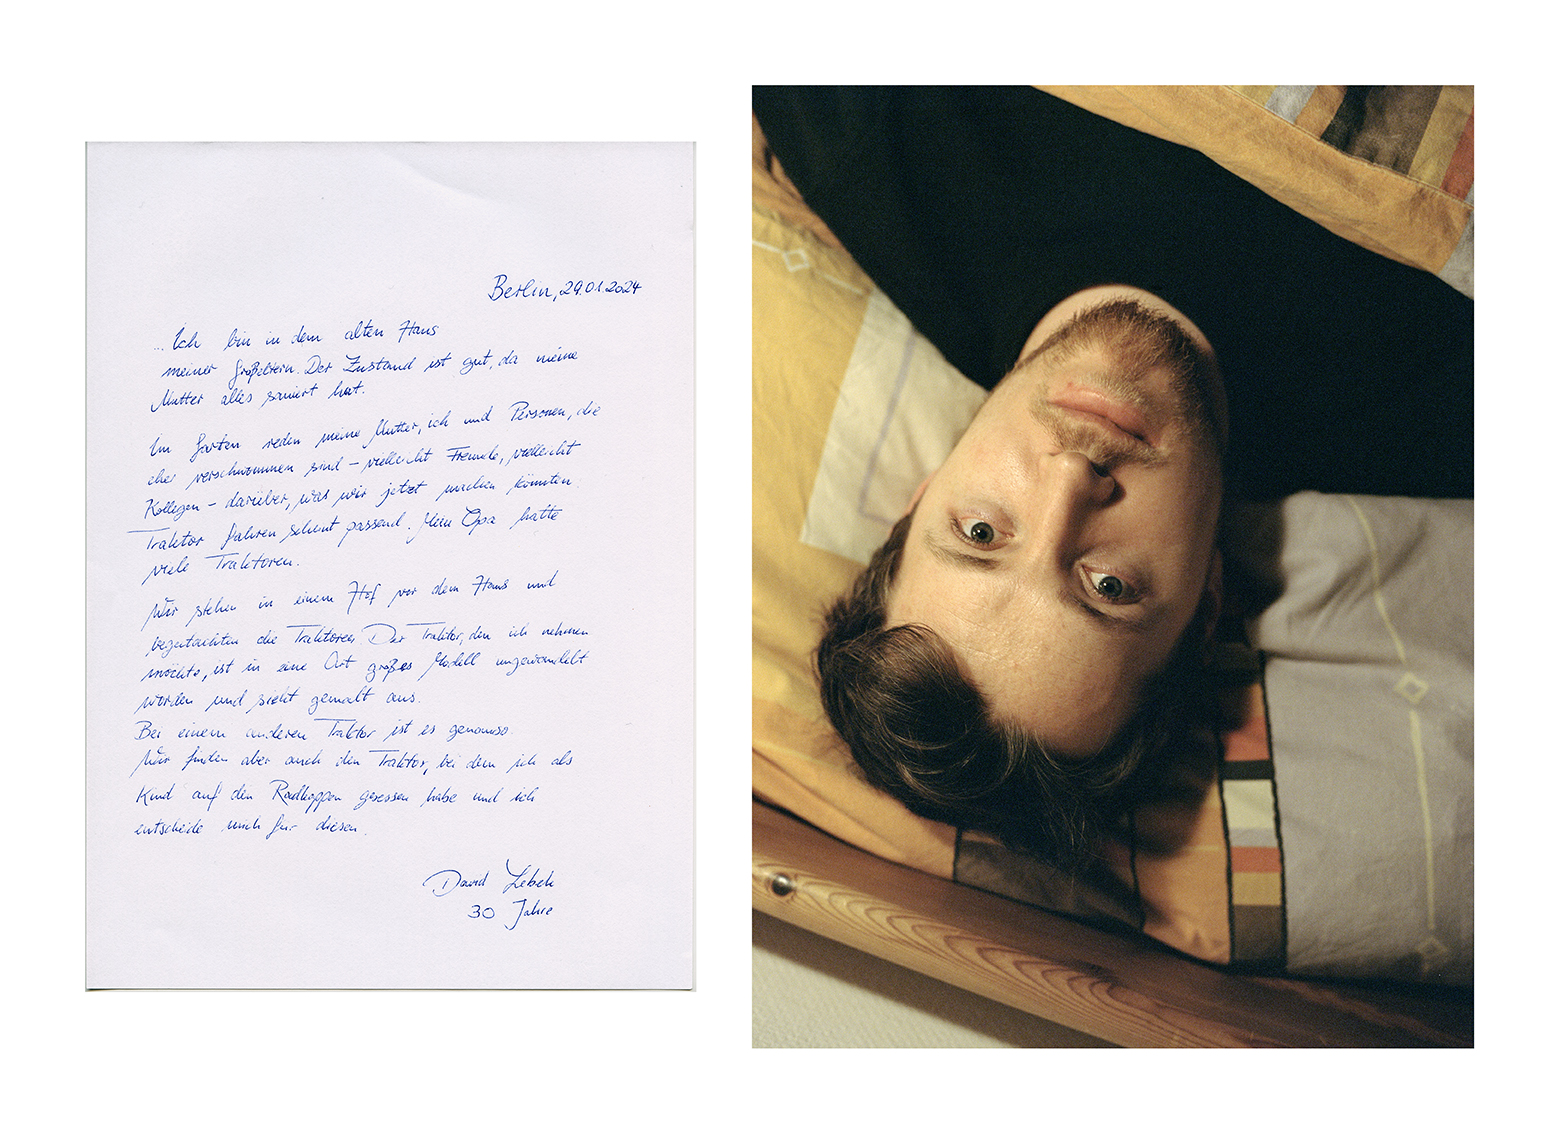 Berlin, 29.01.2024
... Ich bin in dem alten Haus
meiner Großeltern. Der Zustand ist gut, da meine
Mutter alles saniert hat.
Im Garten reden meine Mutter, ich und Personen, die
eher verschwommen sind – vielleicht Freunde, vielleicht
Kollegen – darüber, was wir jetzt machen könnten.
Traktor fahren scheint passend. Mein Opa hatte
viele Traktoren.
Wir stehen in einem Hof vor dem Haus und
begutachten die Traktoren Der Traktor, den ich nehmen
möchte, ist in eine Art großes Modell umgewandelt
worden und sieht gemalt aus.
Bei einem anderen Traktor ist es genauso.
Wir finden aber auch den Traktor, bei dem ich als
Kind auf den Radkappen gesessen habe und ich
entscheide mich für diesen.
David
30 Jahre